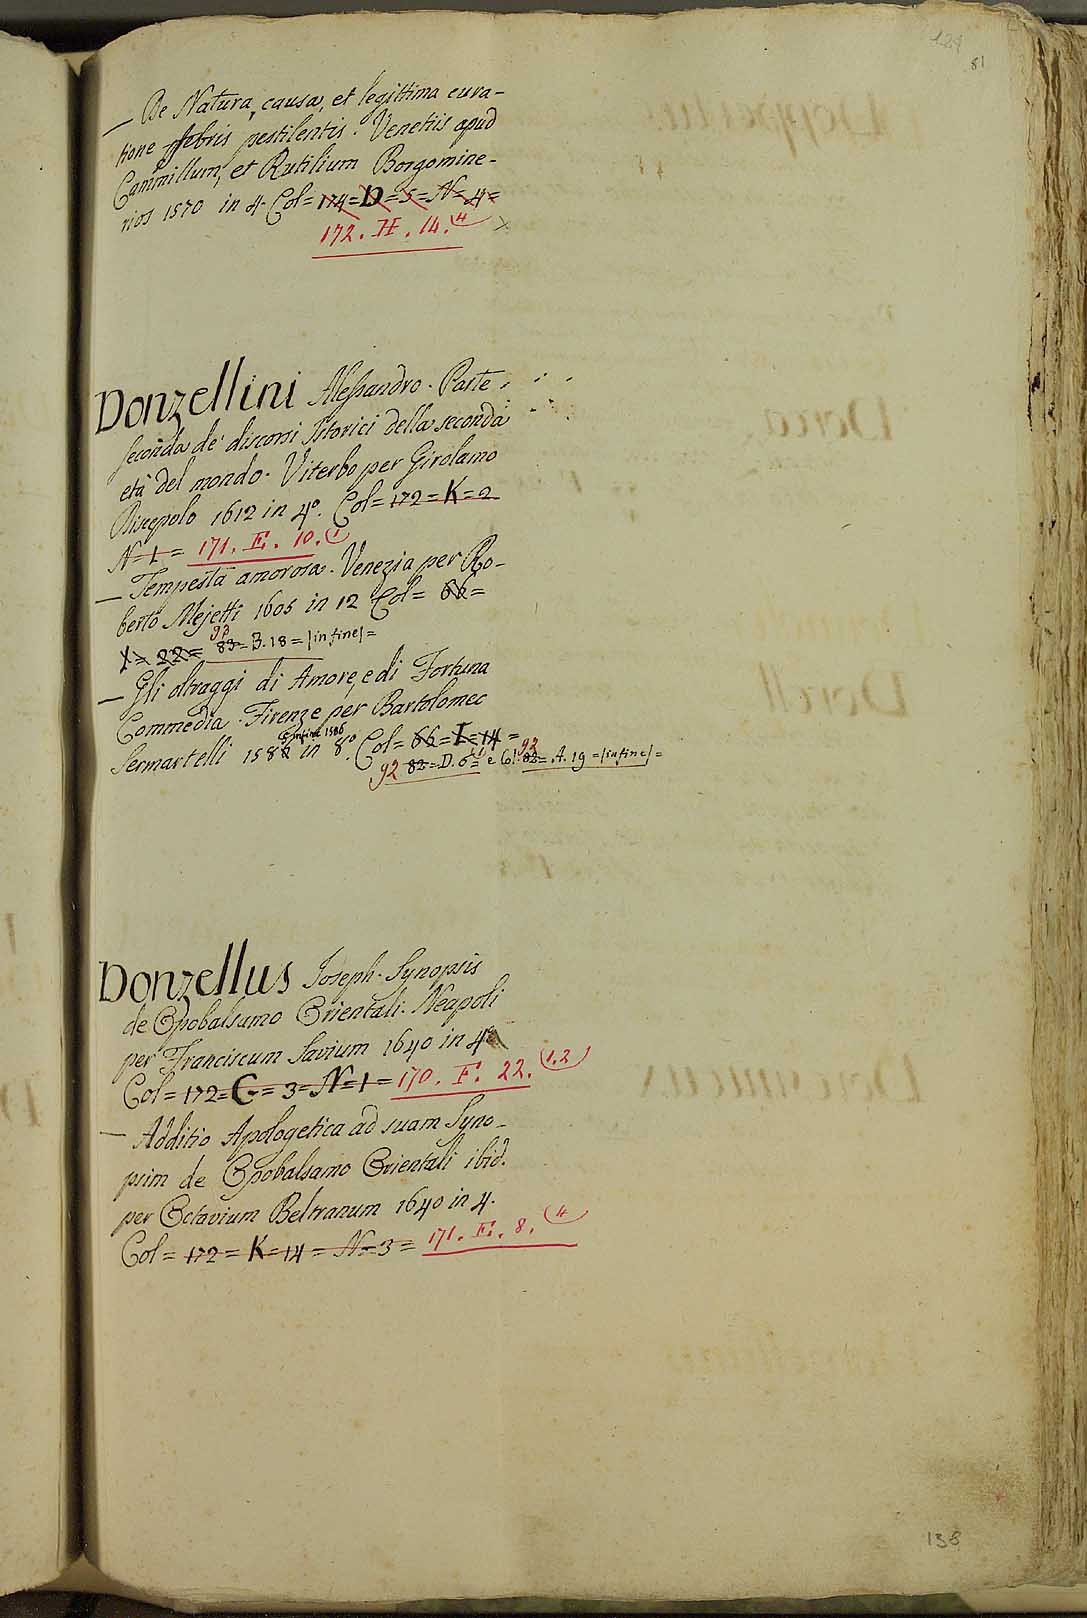 129
81
— De Natura, causa, et legittima cura-
tione febris pestilentis. Venetiis apud
Cammillum, et Rutilium Borgomine-
rios 1570 in 4. Col = 174 = D = 5 = N = 4 =
172. H. 14. 4
Donzellini Alessandro. Parte
seconda de' discorsi Istorici della seconda
età del mondo. Viterbo per Girolamo
Discepolo 1612 in 4º. Col = 172 = K = 2
N = 1 = 171. E. 10. 1
— Tempesta amorosa. Venezia per Ro-
berto Mejetti 1605 in 12 Col = 66 =
93
I = 22 = 83 = B. 18 = /in fine/ =
— Gli oltraggi di Amore, e di Fortuna
Commedia. Firenze per Bartolomeo
in fine 1586
Sermartelli 1582 in 8º. Col = 66 = I = 14 =
92 82 = D. 6 = e Col. 92 82 = A. 19 = /in fine/ =
Donzellus Joseph. Synopsis
de Opobalsamo Orientali. Neapoli
per Franciscum Savium 1640 in 4º
Col = 172 = C = 3 = N = 1 = 170. F. 22. 1.2
— Additio Apologetica ad suam Syno-
psim de Opobalsamo Orientali ibid.
per Octavium Beltranum 1640 in 4.
Col = 172 = K = 14 = N = 3 = 171. E. 8. 4
138